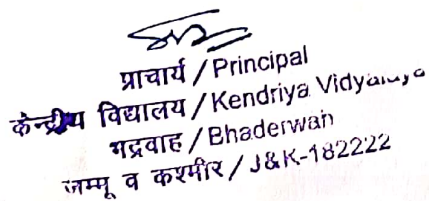 प्राचार्य / Principal
केन्द्रीय विद्यालय / Kendriya Vidyalaya
भद्रवाह / Bhaderwah
जम्मू व कश्मीर / J&K-182222